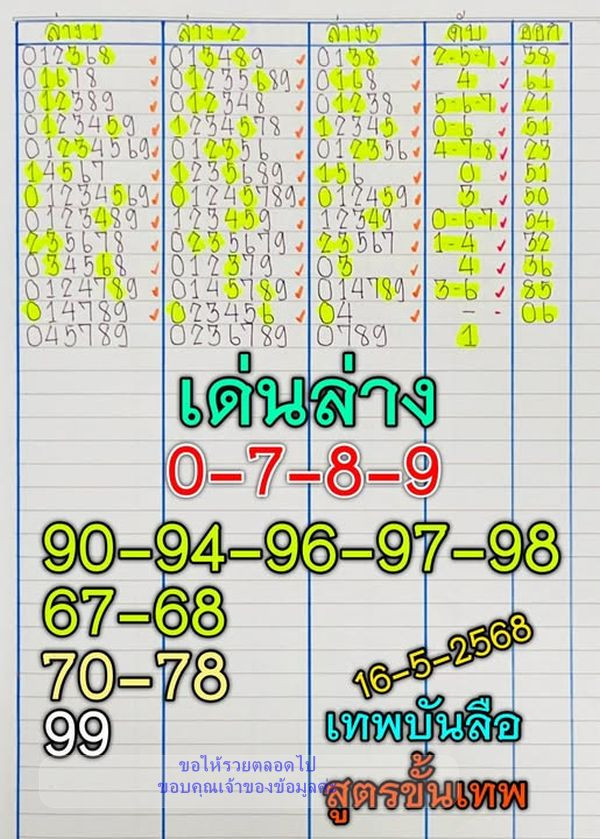 ล่าง 1 ล่าง 2 ล่าง3 ดับ ออก
012368 013489 0138 2-5-7 38
01678 01235689 0168 4 61
012389 012348 01238 5-6-7 21
0123459 1234578 12345 0-6 51
01234569 012356 012356 4-7-8 23
14567 1235689 156 0 51
01234569 01245789 012459 3 50
0123489 123459 12349 0-6-7 54
235678 0235679 23567 1-4 32
034568 012379 03 4 36
0124789 0145789 014789 3-6 85
014789 023456 04 - - 06
045789 0236789 0789 1
เด่นล่าง
0-7-8-9
90-94-96-97-98
67-68
70-78
16-5-2568
99
เทพบันลือ
ขอให้รวยตลอดไป
ขอบคุณเจ้าของข้อมูลค่ะ
สูตรขั้นเทพ